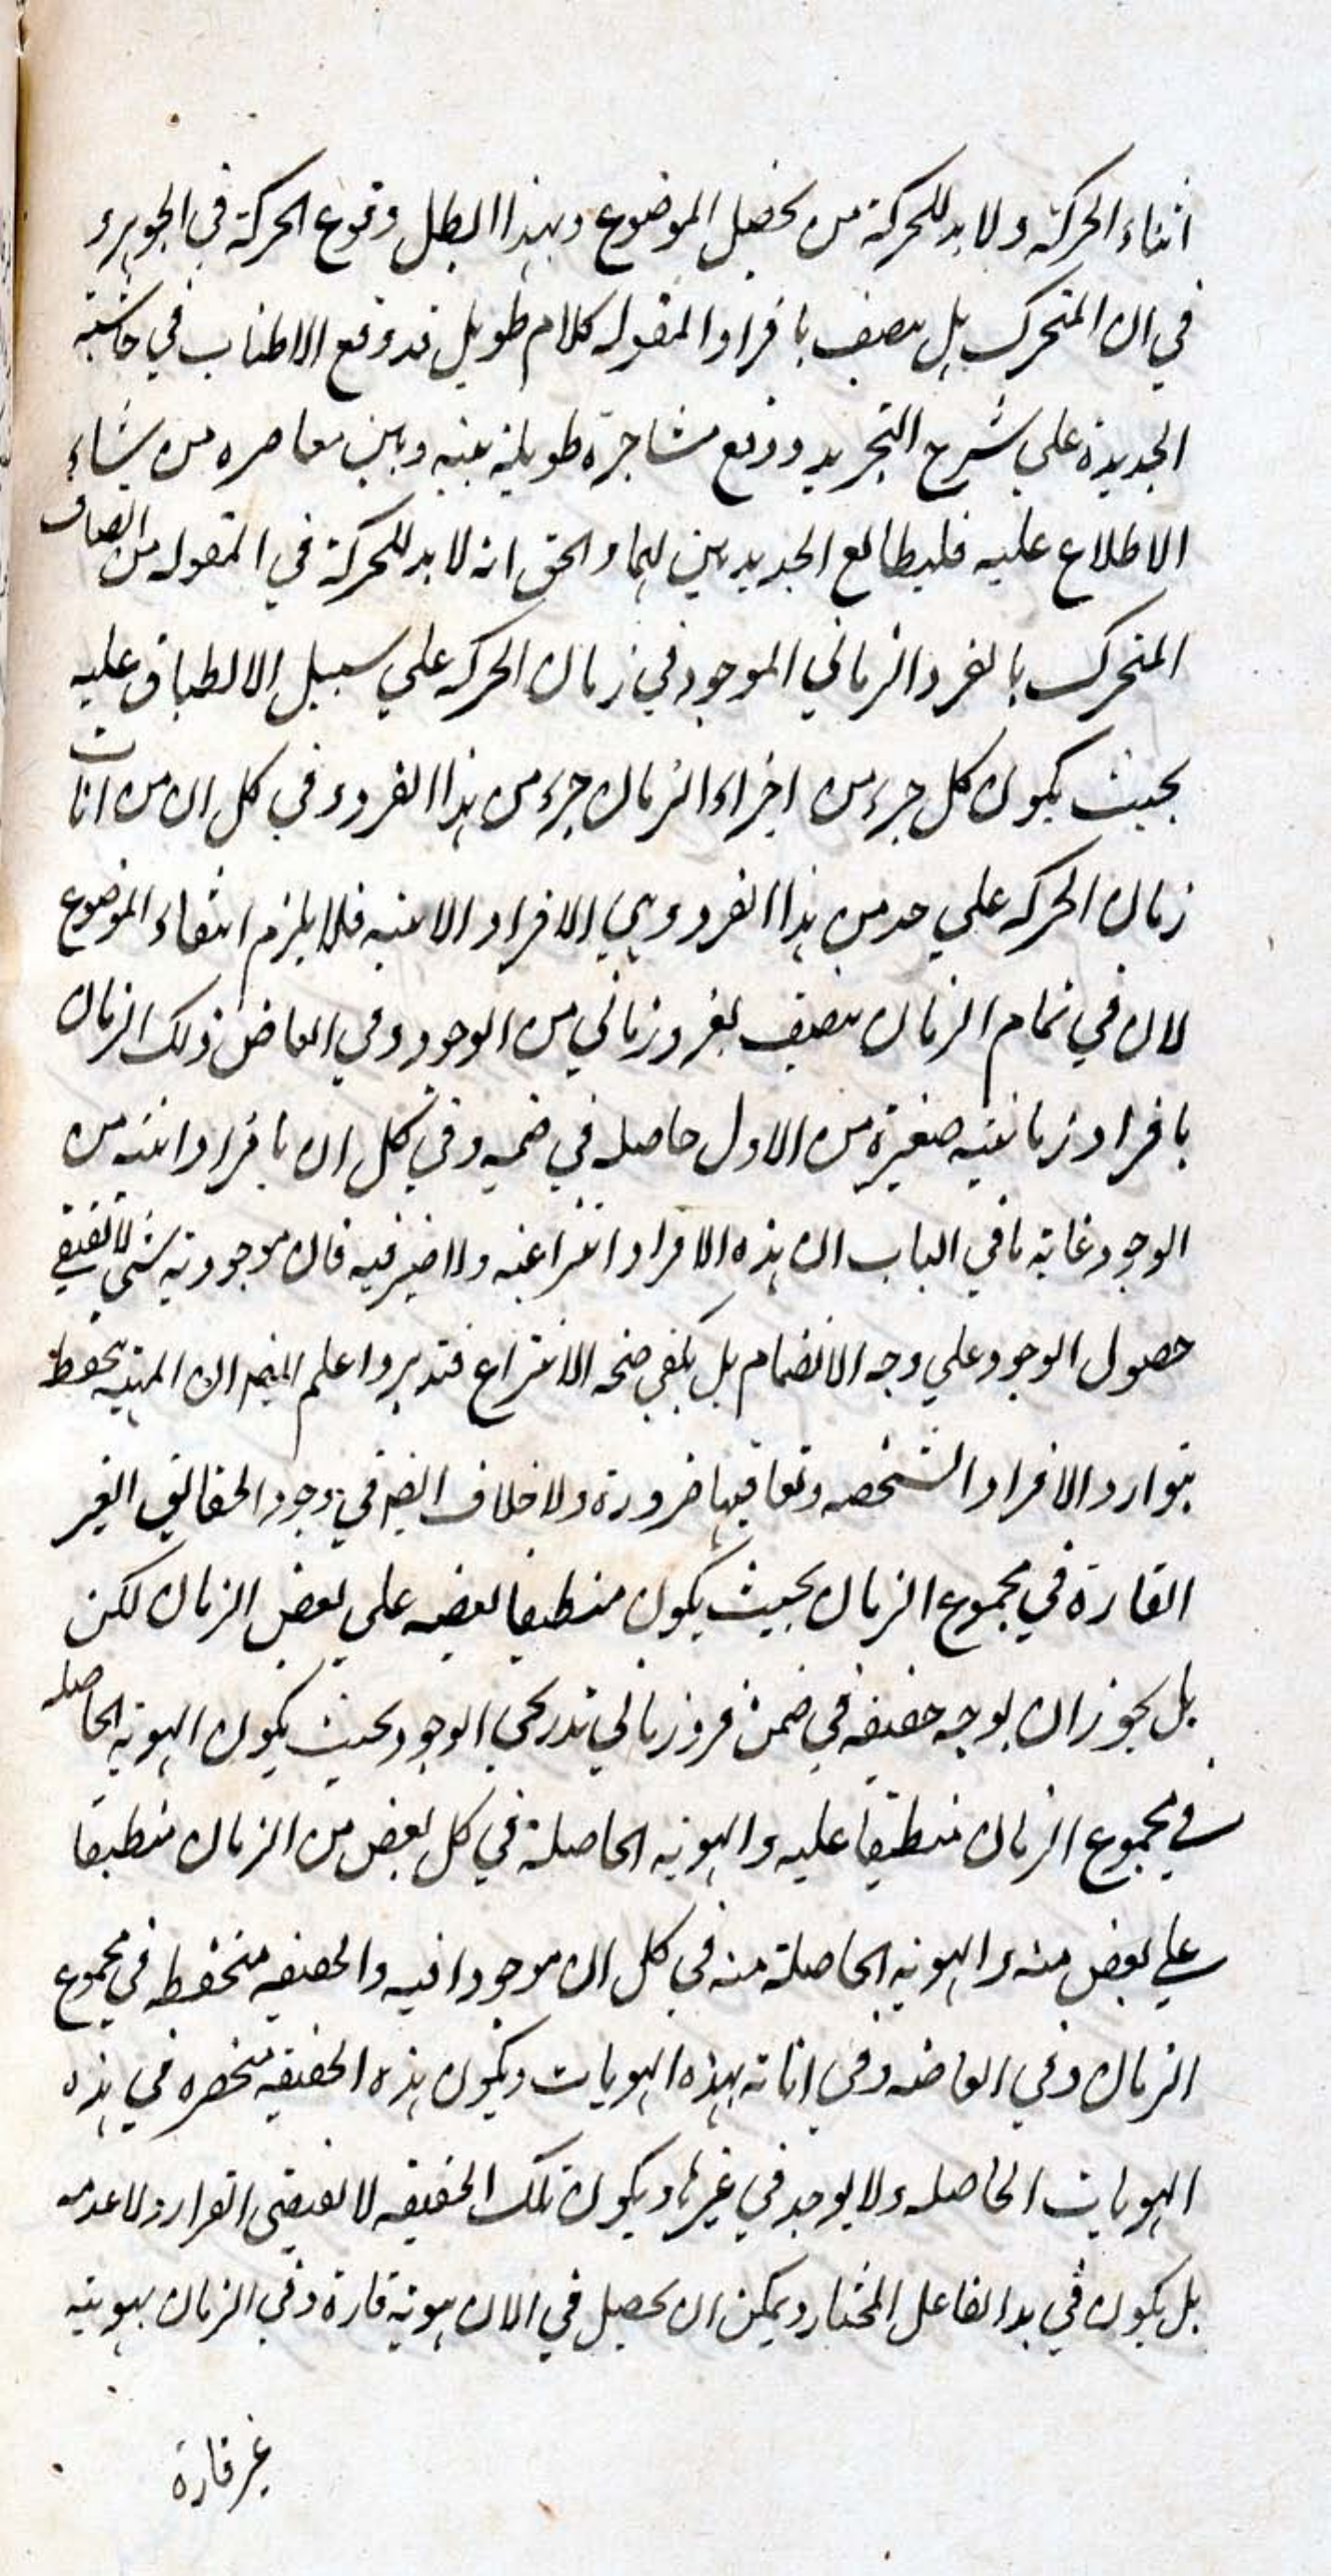 اثناء الحركة ولا بد للحركة من تحصل الموضوع وبهذا ابطل وقوع الحركة في الجوهر و
في ان المتحرك هل يتصف بافراد المقولة كلام طويل قد وقع الاطناب في حاشية
الجديدة على شرح التجريد ووقع مشاجرة طويلة بينه وبين معاصره من يشاء
الاطلاع عليه فليطالع الجديدين لهما والحق انه لا بد للحركة في المقولة من اتصاف
المتحرك بالفرد الزماني الموجود في زمان الحركة علي سبيل الانطباق عليه
بحيث يكون كل جزء من اجزاء الزمان جزء من هذا الفرد وفي كل ان من انات
زمان الحركة علي حد من هذا الفرد وهي الافراد الانية فلا يلزم انتفاء الموضوع
لان في تمام الزمان يتصف بفرد زماني من الوجود وفي ابعاض ذلك الزمان
بافراد زمانية صغيرة من الاول حاصلة في ضمنه وفي كل ان بافراد انية من
الوجود غاية ما في الباب ان هذه الافراد انتزاعية ولا ضير فيه فان موجودية شئ لا تقتضي
حصول الوجود علي وجه الانضمام بل يكفي صحة الانتزاع فتدبر واعلم ايضا ان المهية تحفظ
بتوارد الافراد الشخصية وتعاقبها ضرورة ولا خلاف ايضا في وجود الحقائق الغير
القارة في مجموع الزمان بحيث يكون منطبقا بعضه علي بعض الزمان لكن
هل يجوز ان يوجد حقيقة في ضمن فرد زماني تدريجي الوجود بحيث يكون الهوية الحاصلة
في مجموع الزمان منطبقا عليه والهوية الحاصلة في كل بعض من الزمان منطبقا
علي بعض منه والهوية الحاصلة منه في كل ان موجودا فيه والحقيقة منحفظة في مجموع
الزمان وفي ابعاضه وفي اناته بهذه الهويات ويكون هذه الحقيقة منحصرة في هذه
الهويات الحاصلة ولا يوجد في غيرها ويكون تلك الحقيقة لا تقتضي القرار ولا عدمه
بل يكون في يد الفاعل المختار ويمكن ان يحصل في الان بهوية قارة وفي الزمان بهوية
غير قارة